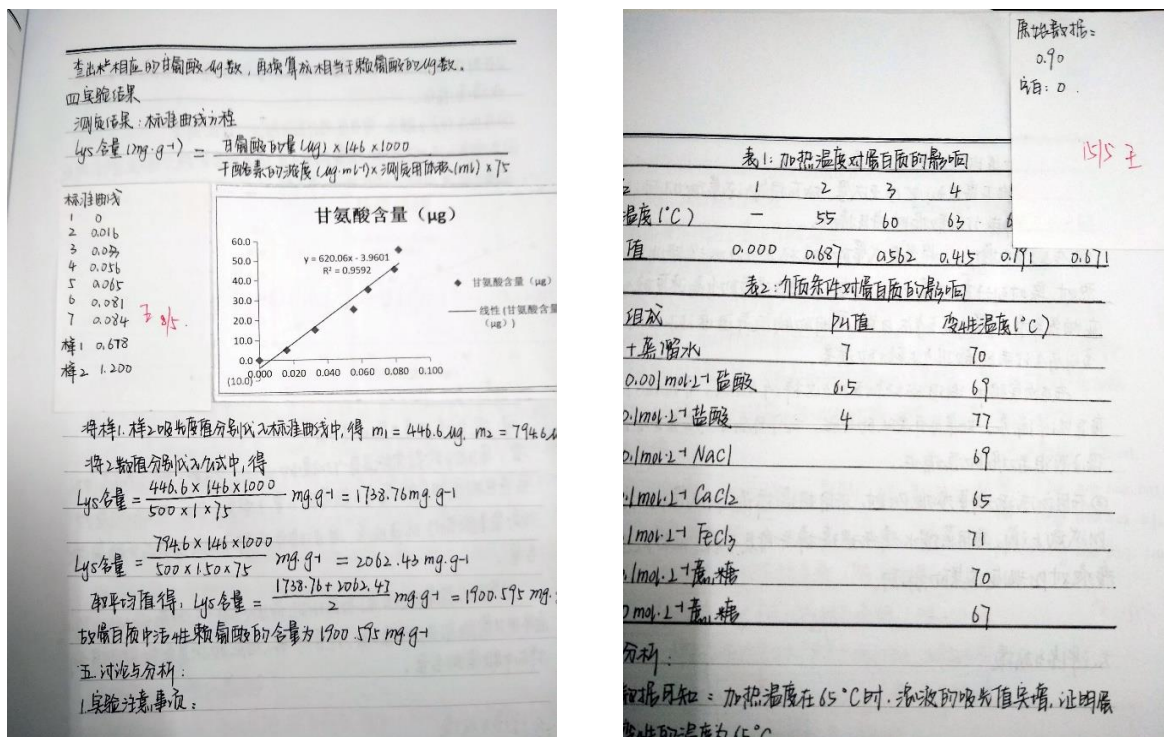 查出A样相应的甘氨酸μg数，再换算成相当于赖氨酸的μg数．
四 实验结果
测定结果：标准曲线方程
Lys含量(mg·g⁻¹) = 甘氨酸的量(μg)×146×1000
干酪素的浓度(μg·mL⁻¹)×测定用体积(mL)×75
标准曲线
1 0
2 0.016
3 0.033
4 0.056
5 0.065
6 0.081
7 0.084
王 8/5.
样1 0.678
样2 1.200
甘氨酸含量（μg）
60.0
50.0
40.0
30.0
20.0
10.0
0.0
(10.0)
0.000 0.020 0.040 0.060 0.080 0.100
y = 620.06x - 3.9601
R² = 0.9592
甘氨酸含量（μg）
线性 (甘氨酸含量
（μg）)
将样1.样2吸光度值分别代入标准曲线中，得 m₁=446.6μg, m₂=794.6μ
将2数值分别代入公式中，得
Lys含量 = 446.6×146×1000
500×1×75
mg·g⁻¹ = 1738.76mg·g⁻¹
Lys含量 = 794.6×146×1000
500×1.50×75
mg·g⁻¹ = 2062.43 mg·g⁻¹
取平均值得，Lys含量 = 1738.76+2062.43
2
mg·g⁻¹ = 1900.595 mg·
故蛋白质中活性赖氨酸的含量为1900.595 mg·g⁻¹
五.讨论与分析：
1.实验注意事项：
原始数据：
0.90
空白：0.
15/5 王
表1：加热温度对蛋白质的影响
1 2 3 4
温度(°C) — 55 60 63 6
值 0.000 0.687 0.562 0.415 0.791 0.671
表2：介质条件对蛋白质的影响
组成 pH值 变性温度(°C)
+蒸馏水 7 70
0.001mol·L⁻¹盐酸 6.5 69
0.1mol·L⁻¹盐酸 4 77
0.1mol·L⁻¹ NaCl 69
.1mol·L⁻¹ CaCl₂ 65
.1mol·L⁻¹ FeCl₃ 71
.1mol·L⁻¹蔗糖 70
0mol·L⁻¹蔗糖 67
分析：
数据可知：加热温度在65°C时，溶液的吸光值突增，证明蛋
变性的温度为65°C